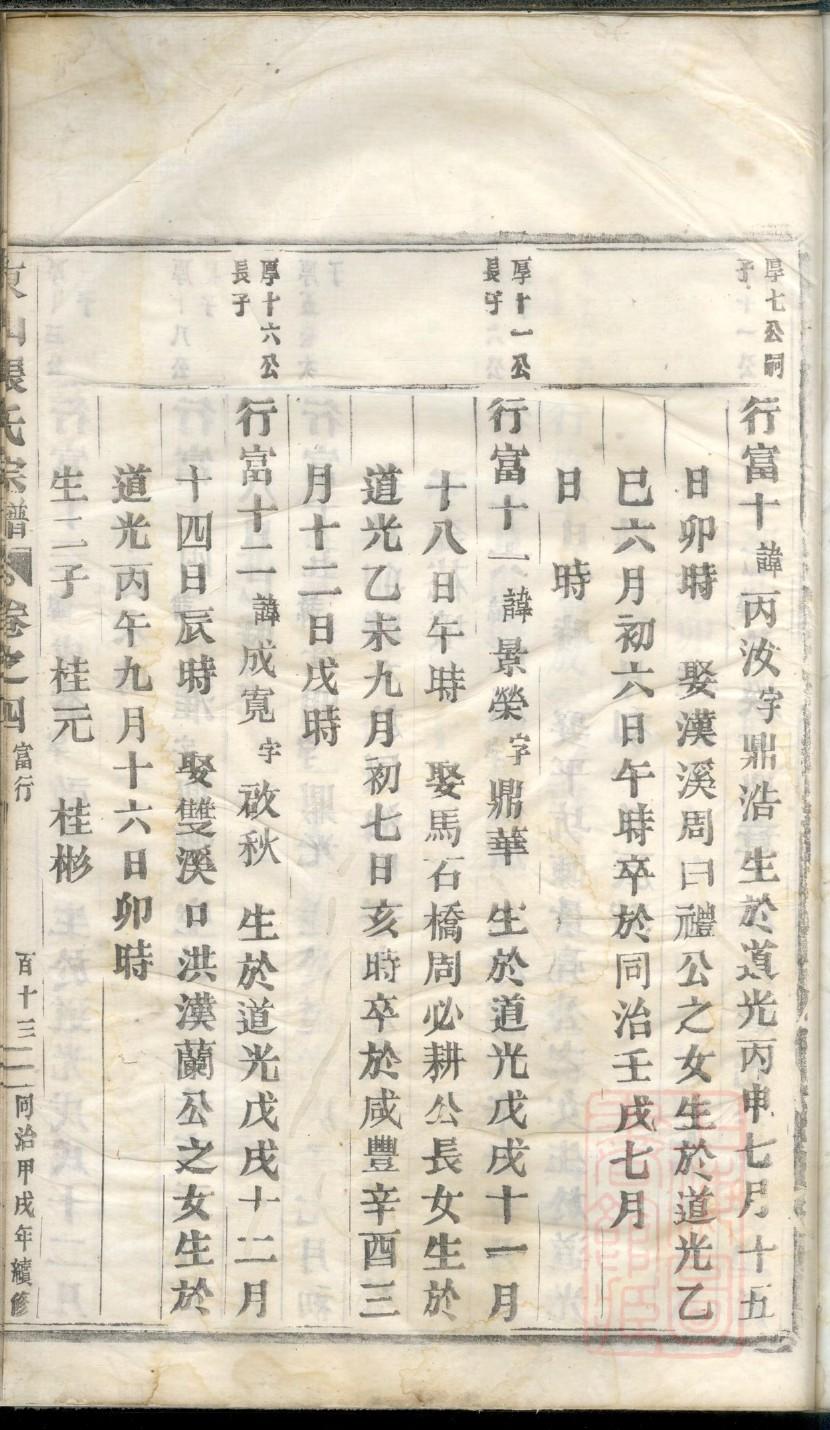 厚七公嗣
子
行富十諱丙汝字鼎浩 生於道光丙申七月十五
日卯時 娶漢溪周曰禮公之女生於道光乙
巳六月初六日午時卒於同治壬戌七月
日 時
厚十一公
長子
行富十一諱景榮字鼎華 生於道光戊戌十一月
十八日午時 娶馬石橋周必耕公長女生於
道光乙未九月初七日亥時卒於咸豐辛酉三
月十二日戌時
厚十六公
長子
行富十二諱成寬字啟秋 生於道光戊戌十二月
十四日辰時 娶雙溪口洪漢蘭公之女生於
道光丙午九月十六日卯時
生二子 桂元 桂彬
張氏宗譜 卷之四 富行 百十三 同治甲戌年續修